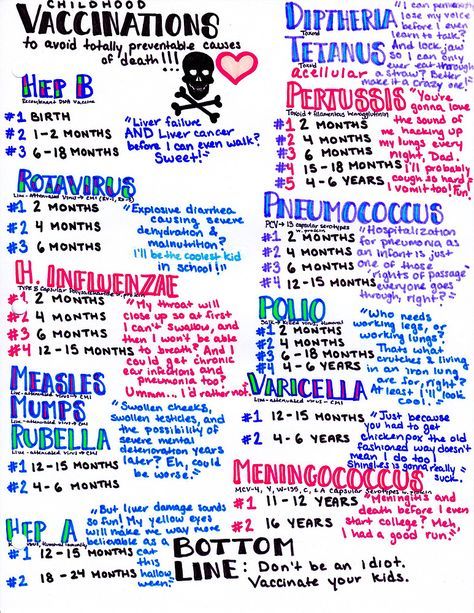 CHILDHOOD
VACCINATIONS
to avoid totally preventable causes
of death!!!
HEP B
Recombinant DNA Vaccine
#1 BIRTH
#2 1-2 MONTHS
#3 6-18 MONTHS
"Liver failure
AND Liver cancer
before I can even walk?
Sweet!"
ROTAVIRUS
#1 2 MONTHS
#2 4 MONTHS
#3 6 MONTHS
"Explosive diarrhea
causing severe
dehydration &
malnutrition?
I'll be the coolest kid
in school!!"
H. INFLUENZAE
#1 2 MONTHS
#2 4 MONTHS
#3 6 MONTHS
#4 12-15 MONTHS
"My throat will
close up so at first
I can't swallow, and
then I won't be able
to breath? And I
could get chronic
ear infections and
pneumonia too?
Ummm... I'd rather not."
MEASLES
MUMPS
RUBELLA
#1 12-15 MONTHS
#2 4-6 MONTHS
"Swollen cheeks,
swollen testicles, and
the possibility of
severe mental
deterioration years
later? Eh, could
be worse."
HEP A
#1 12-15 MONTHS
#2 18-24 MONTHS
"But liver damage sounds
so fun! My yellow eyes
will make me way more
believable as a
cat
this
hallow
ween."
DIPTHERIA
Toxoid
TETANUS
Toxoid
acellular
PERTUSSIS
"I can permanently
lose my voice
before I ever
learn to talk?
And lock jaw
so I can only
ever eat through
a straw? Better
make it a crazy one!"
#1 2 MONTHS
#2 4 MONTHS
#3 6 MONTHS
#4 15-18 MONTHS
#5 4-6 YEARS
"You're
gonna love
the sound of
me hacking up
my lungs every
night, Dad.
I'll probably
cough so hard
I vomit too! Fun."
PNEUMOCOCCUS
PCV → 13 capsular serotypes
w. protein
#1 2 MONTHS
#2 4 MONTHS
#3 6 MONTHS
#4 12-15 MONTHS
"Hospitalization
for pneumonia as
an infant is just
one of those
"rights of passage"
everyone goes
through, right?"
POLIO
#1 2 MONTHS
#2 4 MONTHS
#3 6-18 MONTHS
#4 4-6 YEARS
"Who needs
working legs, or
working lungs?
Thats what
crutches & living
in an iron lung
are for, right?
At least I'll look
cool."
VARICELLA
#1 12-15 MONTHS
#2 4-6 YEARS
"Just because
you had to get
chickenpox the old
fashioned way doesn't
mean I do too!
Shingles is gonna really
suck."
MENINGOCOCCUS
#1 11-12 YEARS
#2 16 YEARS
"Meningitis and
death before I even
start college? Meh,
I had a good run."
BOTTOM
LINE: Don't be an idiot.
Vaccinate your kids.